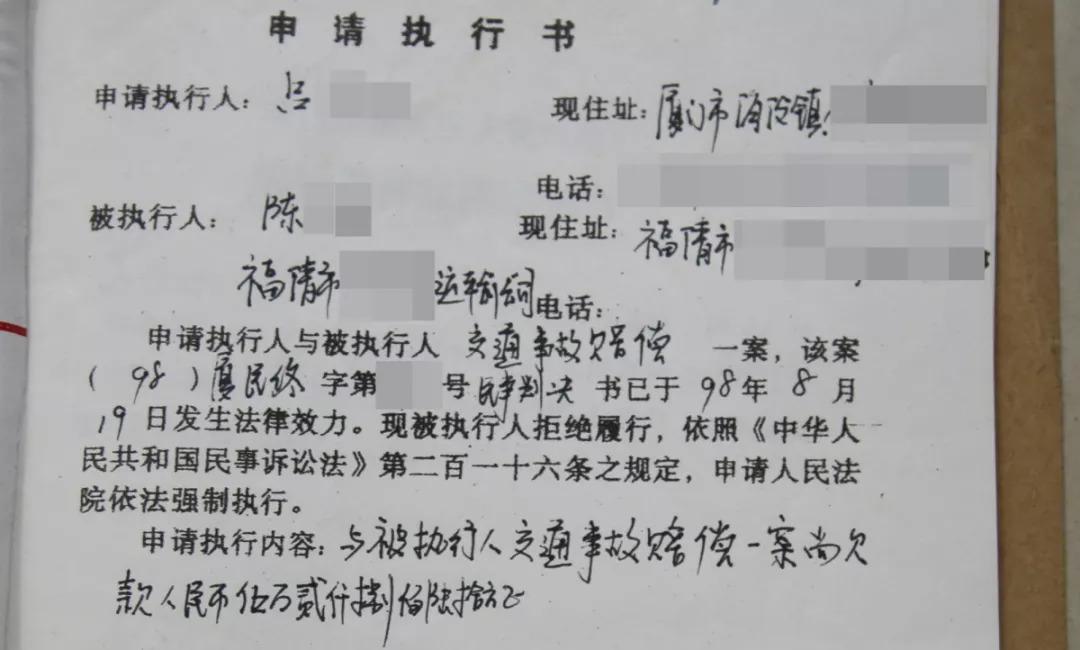 申请执行书
申请执行人：吕 现住址：厦门市海沧镇
电话：
被执行人：陈 现住址：福清市
福清市 运输公司 电话：
申请执行人与被执行人 交通事故赔偿 一案，该案
（98）厦民终 字第 号 民事判决 书已于 98 年 8 月
19 日发生法律效力。现被执行人拒绝履行，依照《中华人
民共和国民事诉讼法》第二百一十六条之规定，申请人民法
院依法强制执行。
申请执行内容：与被执行人交通事故赔偿一案尚欠
款人民币伍万贰仟捌佰陆拾